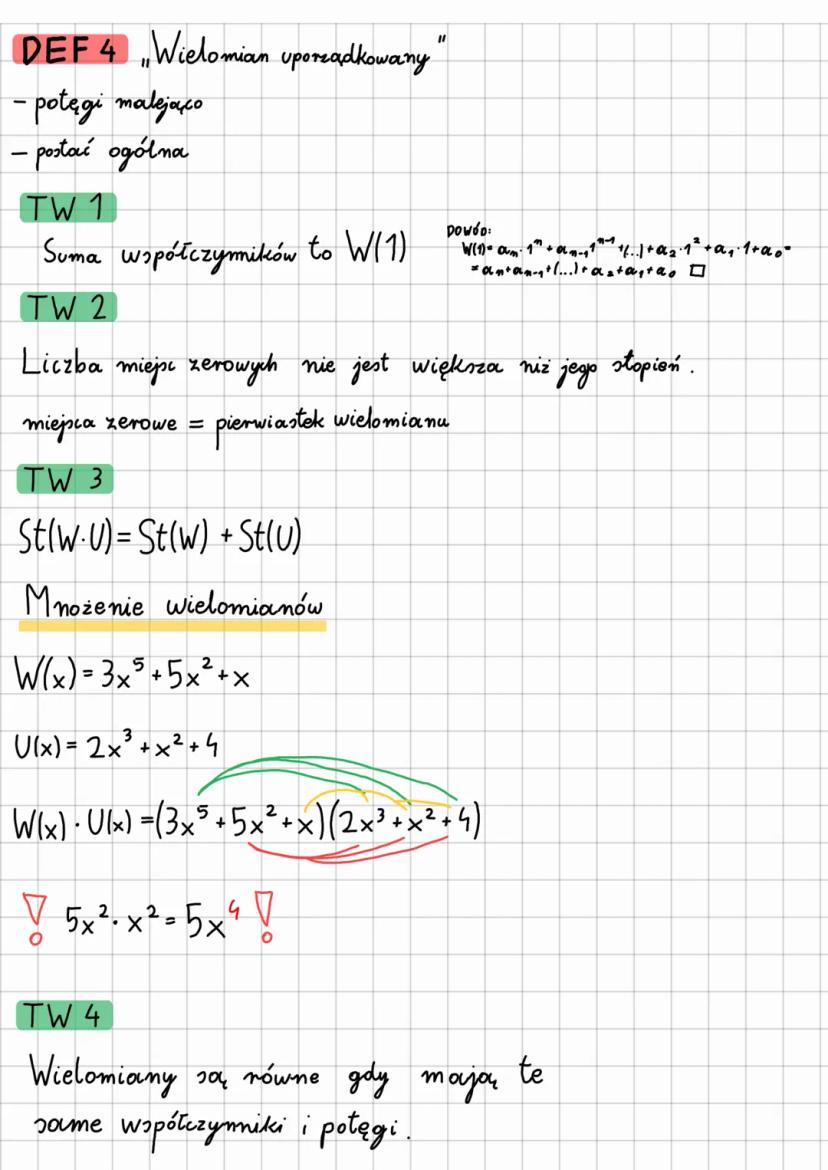 DEF 4 „Wielomian uporządkowany"
- potęgi malejąco
- postać ogólna
TW 1
Suma współczynników to W(1)
DOWÓD:
W(1)= aₙ·1ⁿ + aₙ₋₁1ⁿ⁻¹ + (...) + a₂·1² + a₁·1 + a₀ =
= aₙ + aₙ₋₁ + (...) + a₂ + a₁ + a₀ □
TW 2
Liczba miejsc zerowych nie jest większa niż jego stopień.
miejsca zerowe = pierwiastek wielomianu
TW 3
St(W·U)= St(W) + St(U)
Mnożenie wielomianów
W(x) = 3x⁵ + 5x² + x
U(x) = 2x³ + x² + 4
W(x) · U(x) =(3x⁵ + 5x² + x)(2x³ + x² + 4)
! 5x² · x² = 5x⁴ !
TW 4
Wielomiany są równe gdy mają te
same współczynniki i potęgi.